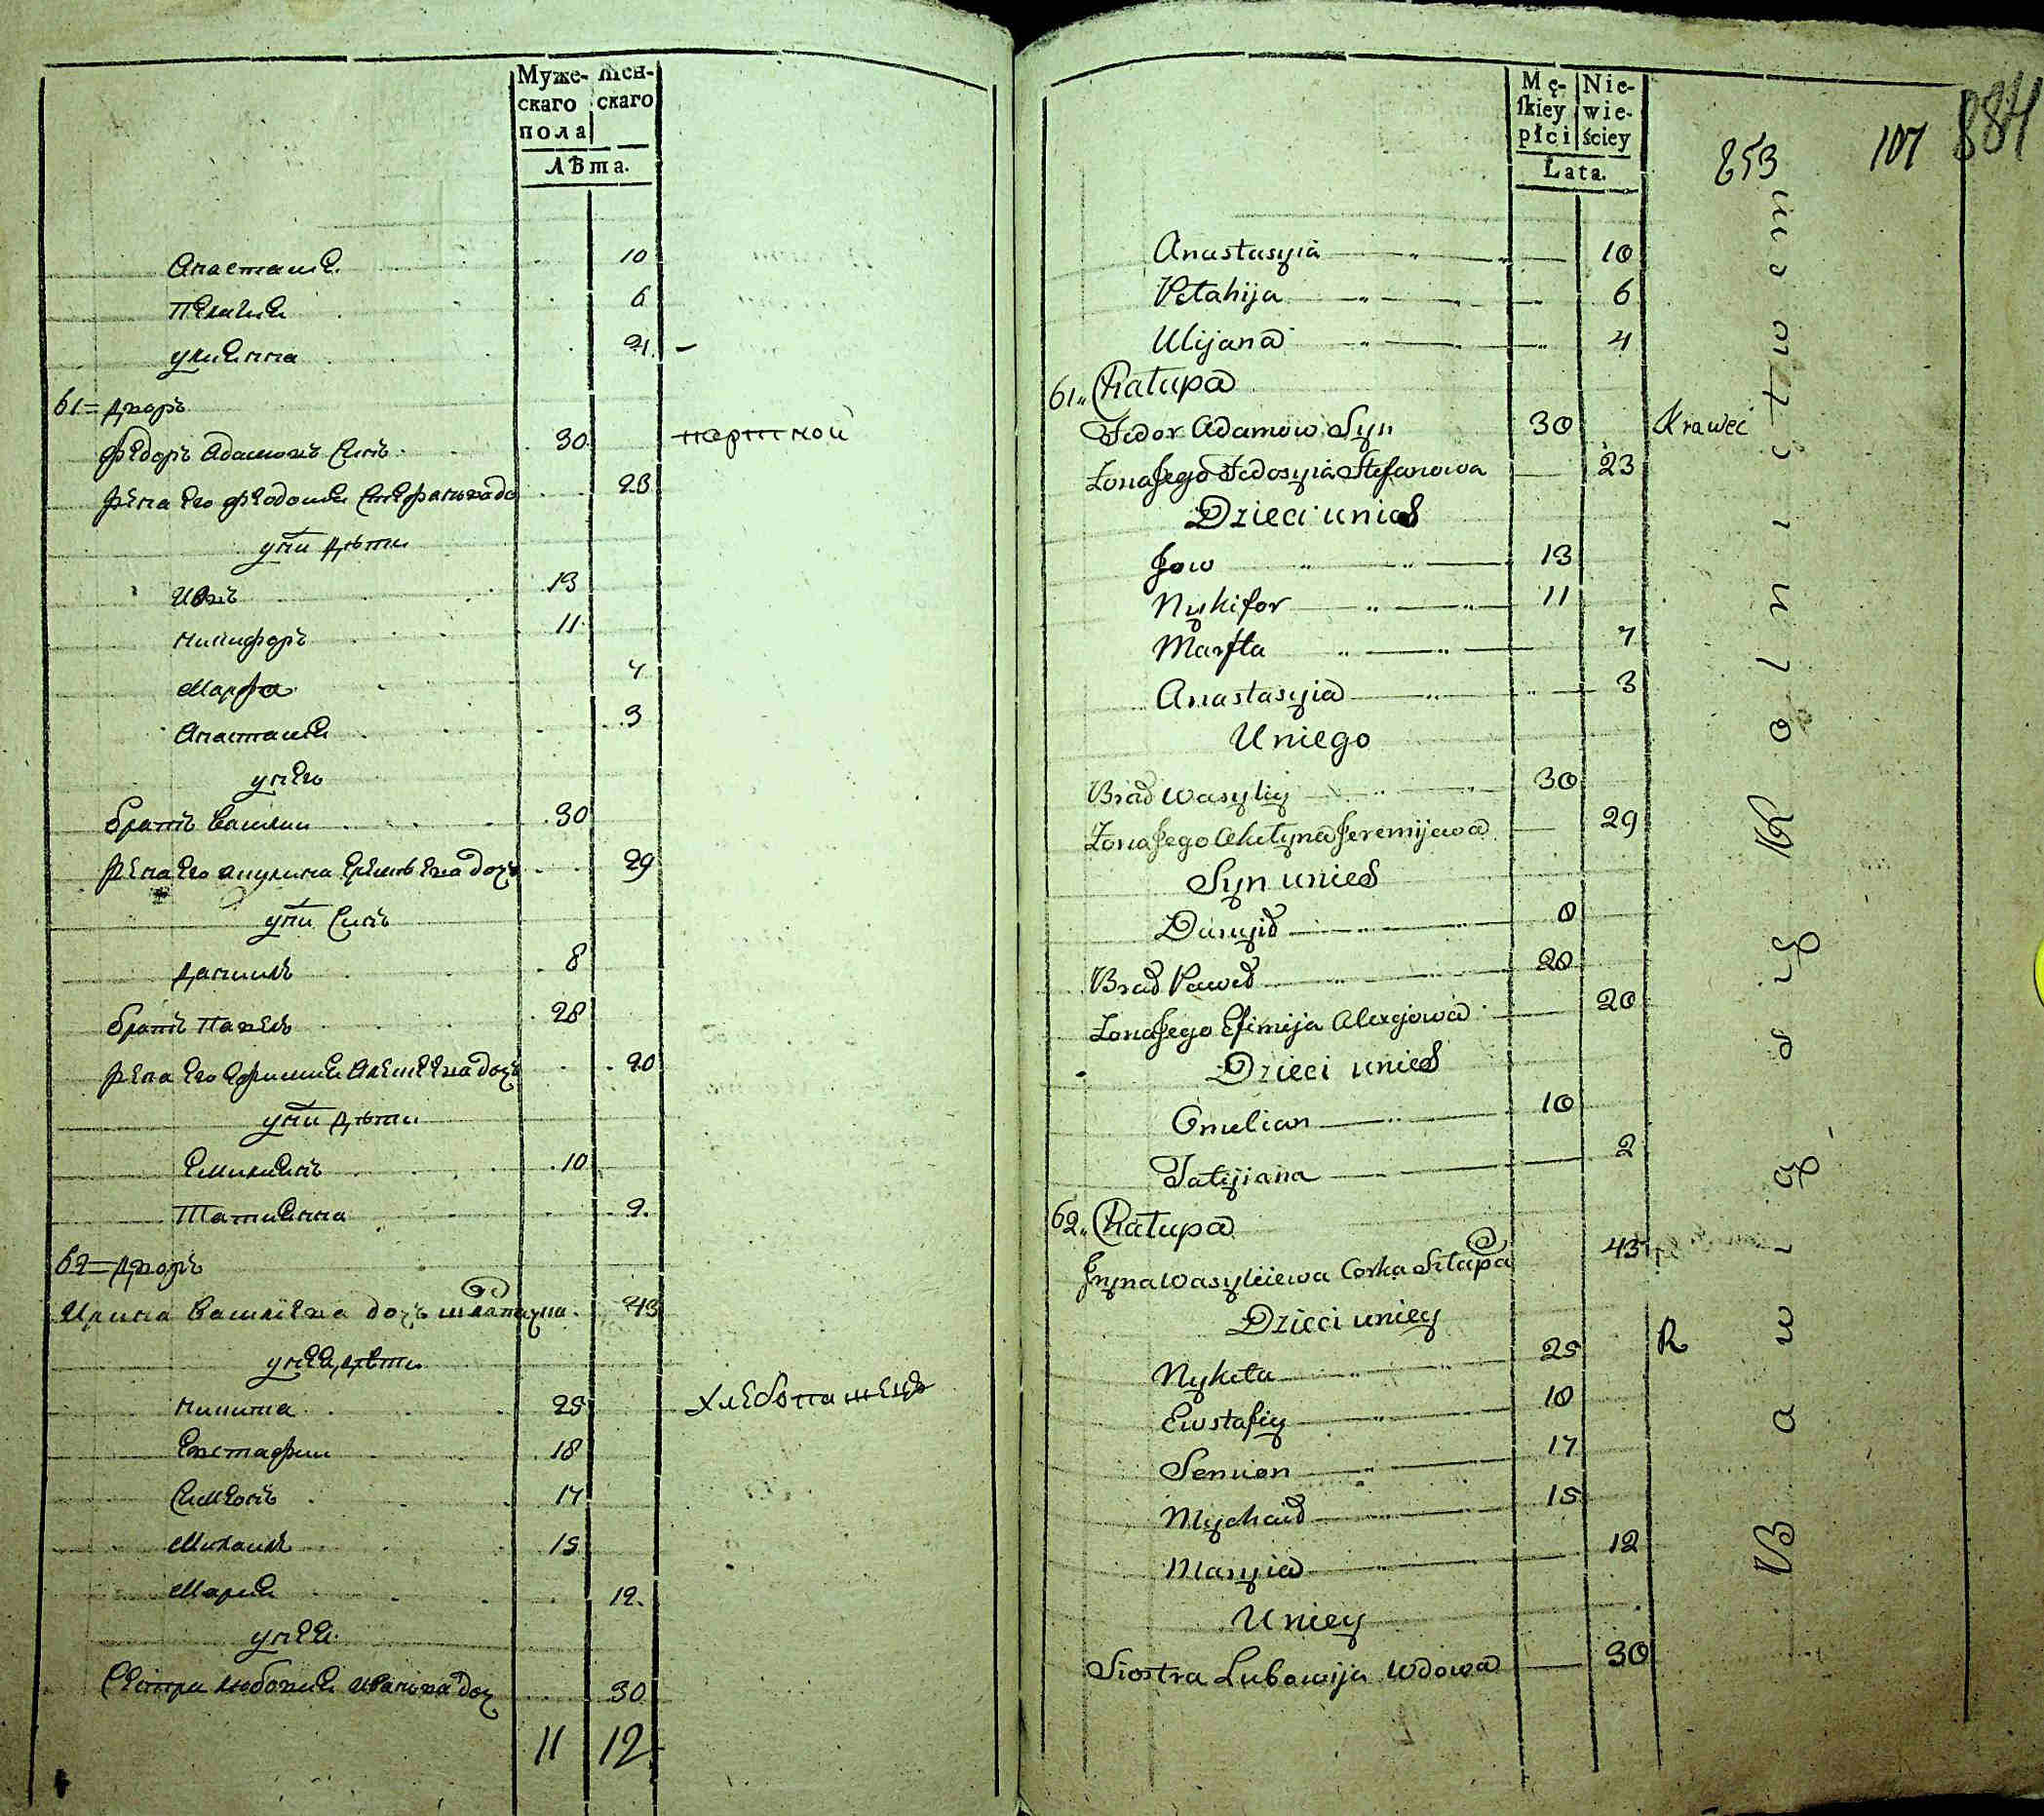 Муже- жен-
скаго скаго
пола
Лѣта.
Анастасия 10
Пелагия 6
улиянна 4
61 = дворъ
Федоръ Адамовъ Синъ 30 портной
жена Его феодосия Стефанова до 23
у них дѣти
Иовъ 13
никифоръ 11
Марфа 7
Анастасия 3
у него
братъ василий 30
жена Его акулина Еремѣева дочь 29
у них Синъ
данiилъ 8
братъ павелъ 28
жена Его Ефимия Алексѣева дочь 20
у них дѣти
Емилиянъ 10
Татиянна 2.
62 = дворъ
Ирина васильева дочь 43
у нея дѣти
никита 25 хлебопашецъ
Евстафии 18
Симеонъ 17
Михаилъ 15
Мария 12.
у неи
Сестра любовия иванова доч 30
11 12
Mę- Nie-
ſkiey wie-
płci ściey
Lata.
253 107 884
Anastasyia 10
Pelahija 6
Ulijana 4
61. Chałupa
Fedor Adamow Syn 30 Krawec
Żona Jego Fedosyia Stefanowa 23
Dzieci unich
Jow 13
Nykifor 11
Marfta 7
Anastasyia 3
Uniego
Brad Wasyliy 30
Żona Jego Akulyna Jeremijewa 29
Syn unich
Danyił 8
Brad Paweł 28
Żona Jego Efimija Alexejowa 20
Dzieci unich
Omelian 10
Tatyiana 2
62. Chałupa
Jryna Wasyliiewa Corka 43
Dzieci uniey
Nykita 25 R
Ewstafiy 18
Semion 17
Mychaił 15
Maryia 12
Uniey
Siostra Lubowija wdowa 30